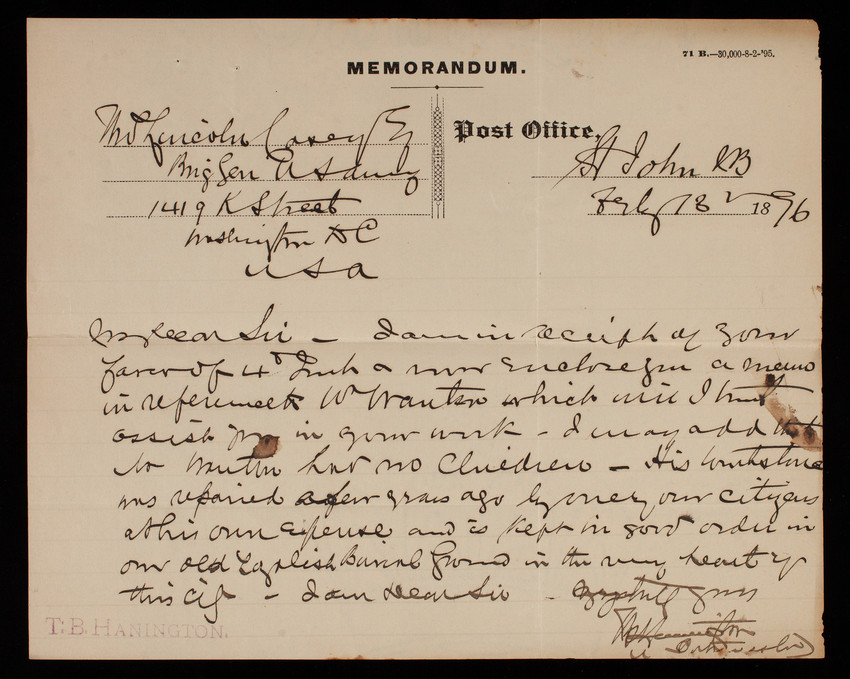 71 B.—30,000-8-2-'95.
MEMORANDUM.
Thos Lincoln Casey Esq
Brig Gen U S Army
1419 K Street
Washington D C
U S A
Post Office,
St John N B
Feby 18 1896
My dear Sir – I am in receipt of your
favor of 4th Inst & now enclose you a memo
in reference to Wm Wanton which will I trust
assist you in your work – I may add that
Mr Wanton had no Children – His tombstone
was repaired a few years ago by one of our citizens
at his own expense and is kept in good order in
our old English Burial Ground in the very heart of
this City – I am Dear Sir – yours
T. B. HANINGTON.